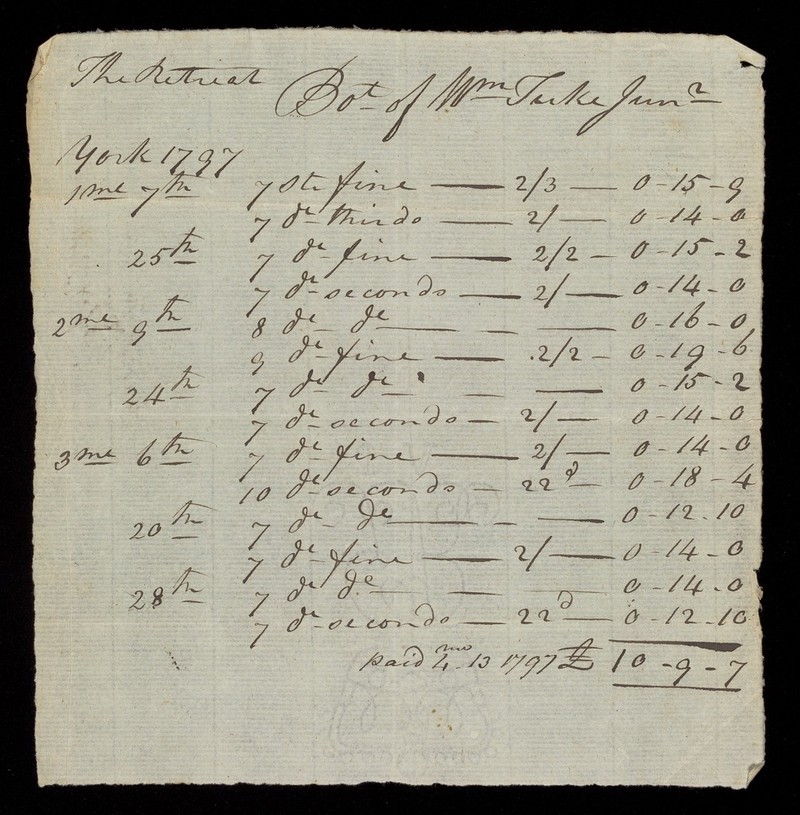 The Retreat Bot of Wm Tuke Junr
York 1797
1me 7th 7 Stn fine — 2/3 — 0-15-9
7 do thirds — 2/ — 0-14-0
25th 7 do fine — 2/2 — 0-15-2
7 do seconds — 2/ — 0-14-0
2me 9th 8 do do — — 0-16-0
9 do fine — 2/2 — 0-19-6
24th 7 do do — — 0-15-2
7 do seconds — 2/ — 0-14-0
3me 6th 7 do fine — 2/ — 0-14-0
10 do seconds — 22d — 0-18-4
20th 7 do do — — 0-12-10
7 do fine — 2/ — 0-14-0
28th 7 do do — — 0-14-0
7 do seconds — 22d — 0-12-10
paid 4mo 13 1797 £ 10-9-7